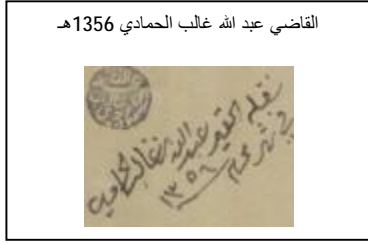 القاضي عبد الله غالب الحمادي 1356هـ
نقله الفقير عبدالله غالب الحمادي
في شهر محرم
١٣٥٦